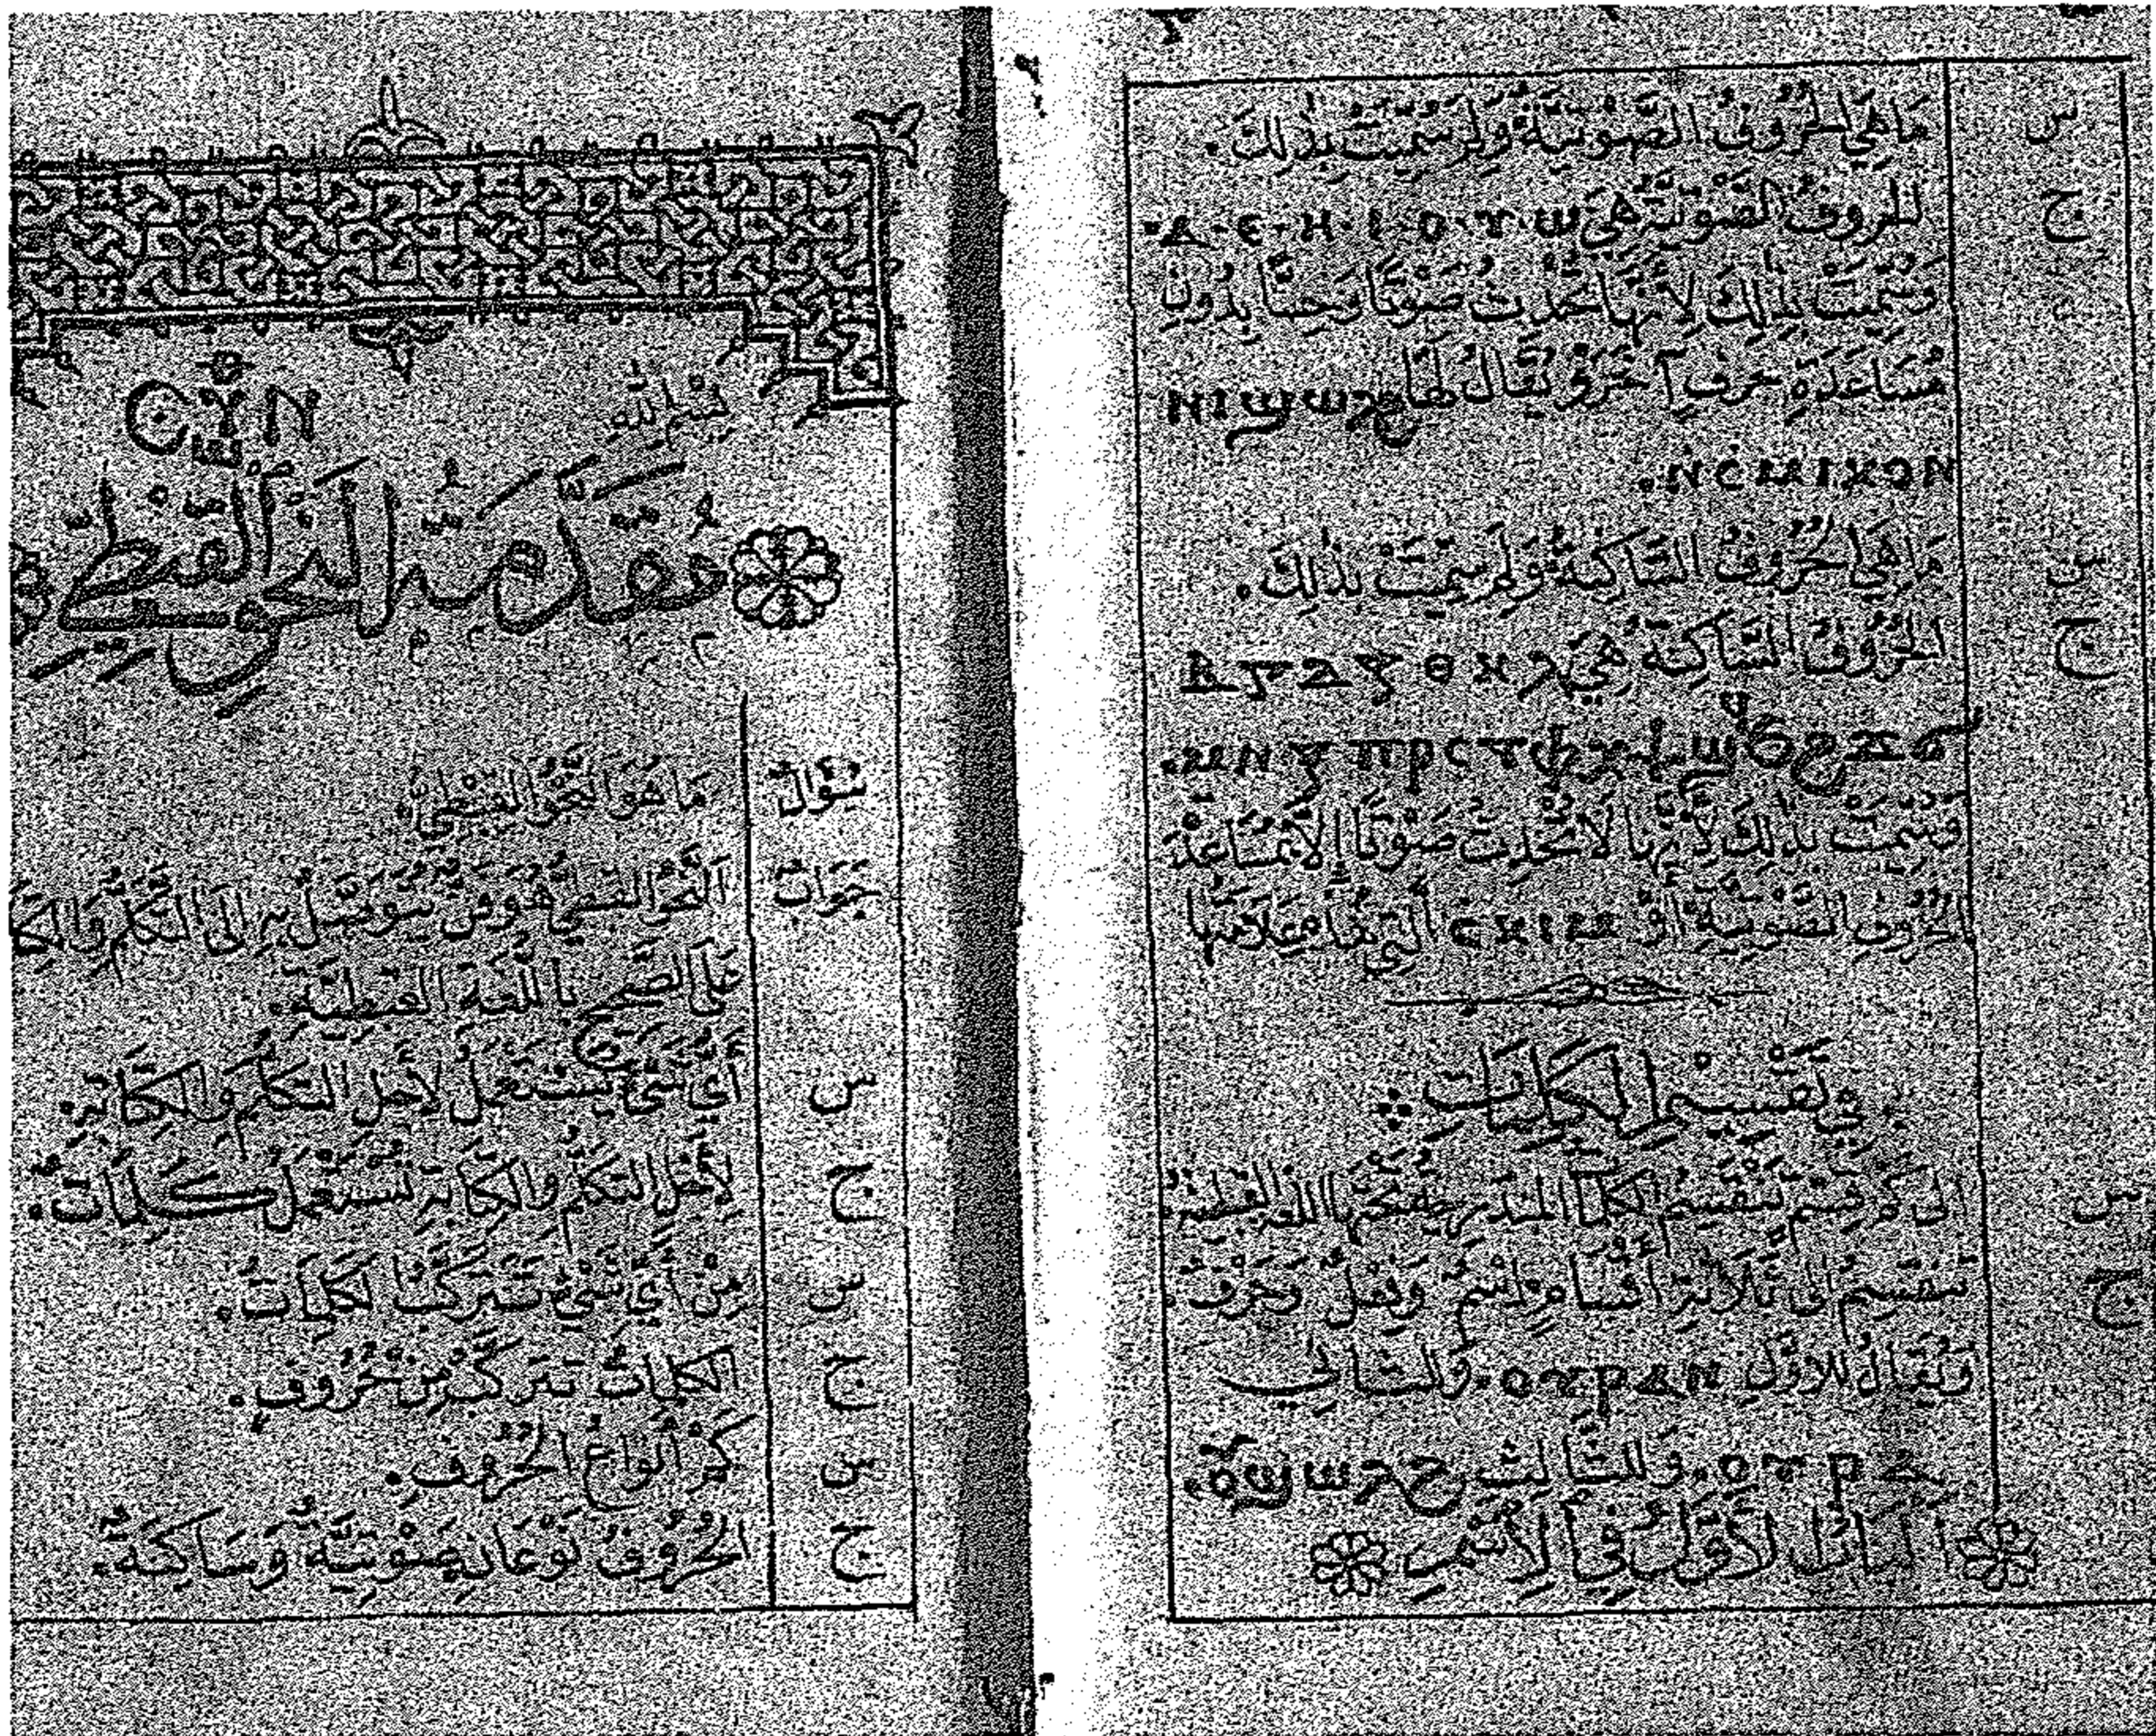 ⲤⲨⲚ
بسم الله
مُقَدِّمَة النحو القبطي
سؤال ما هو النحو القبطي
جواب النحو القبطي هو فن يتوصل به الى التكلم والكتا
على الصحيح باللغة القبطية.
س أي شيء يستعمل لاجل التكلم والكتابة.
ج لاجل التكلم والكتابة تستعمل كلمات.
س من أي شيء تتركب الكلمات.
ج الكلمات تتركب من حروف.
س كم أنواع الحروف.
ج الحروف نوعان صوتية وساكنة.
س ما هي الحروف الصوتية ولم سميت بذلك.
ج الحروف الصوتية هي ⲁ·ⲉ·ⲏ·ⲓ·ⲟ·ⲩ·ⲱ
وسميت بذلك لأنها تحدث صوتا وحسا بدون
مساعدة حرف آخر ويقال لها
ⲚⲤⲘⲒⲬⲞⲚ.
س ما هي الحروف الساكنة ولم سميت بذلك.
ج الحروف الساكنة هي ⲃ ⲅ ⲇ ⲍ ⲑ ⲕ ⲗ
ⲙ ⲛ ⲝ ⲡ ⲣ ⲥ ⲧ ⲫ ⲭ ⲯ ϣ ϥ ϧ ϩ ϫ ϭ ϯ
وسميت بذلك لأنها لا تحدث صوتا إلا بمساعدة
الحروف الصوتية أو التي هذه علامتها
في تقسيم الكلمات
س الى كم قسم تنقسم الكلمات اللغة القبطية.
ج تنقسم الى ثلاثة اقسام اسم وفعل وحرف.
ويقال للاول ⲟⲩⲣⲁⲛ. وللثاني
ⲟⲩⲣⲁ. وللثالث
الباب الاول في الاسم